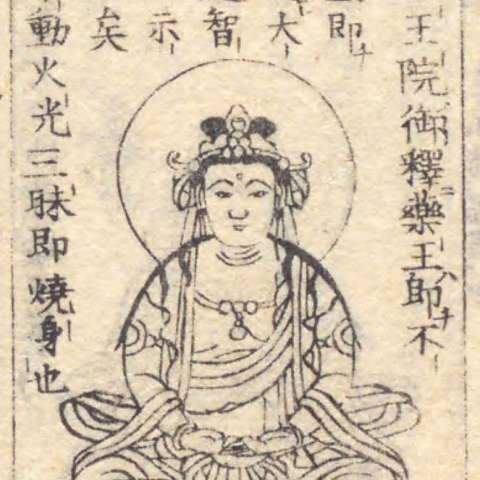 王院御釋ニ藥王ハ即チ不
即チ
大
智
示
矣
動火光三昧即燒身也